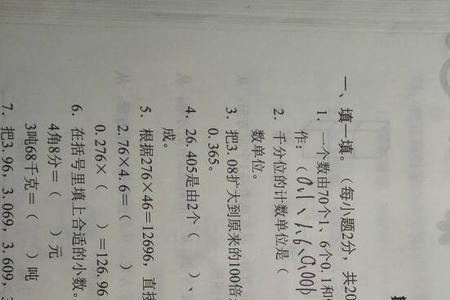 一、填一填。（每小题2分，共20
1. 一个数由70个1、6个0.1和
作：（
2. 千分位的计数单位是（
数单位。
3. 把3.08扩大到原来的100倍
0.365。
4. 26.405是由2个（ ）、
成。
5. 根据276×46=12696，直接
2.76×4.6=（ ）
0.276×（ ）=126.96
6. 在括号里填上合适的小数。
4角8分=（ ）元
3吨68千克=（ ）吨
7. 把3.96，3.069，3.609，